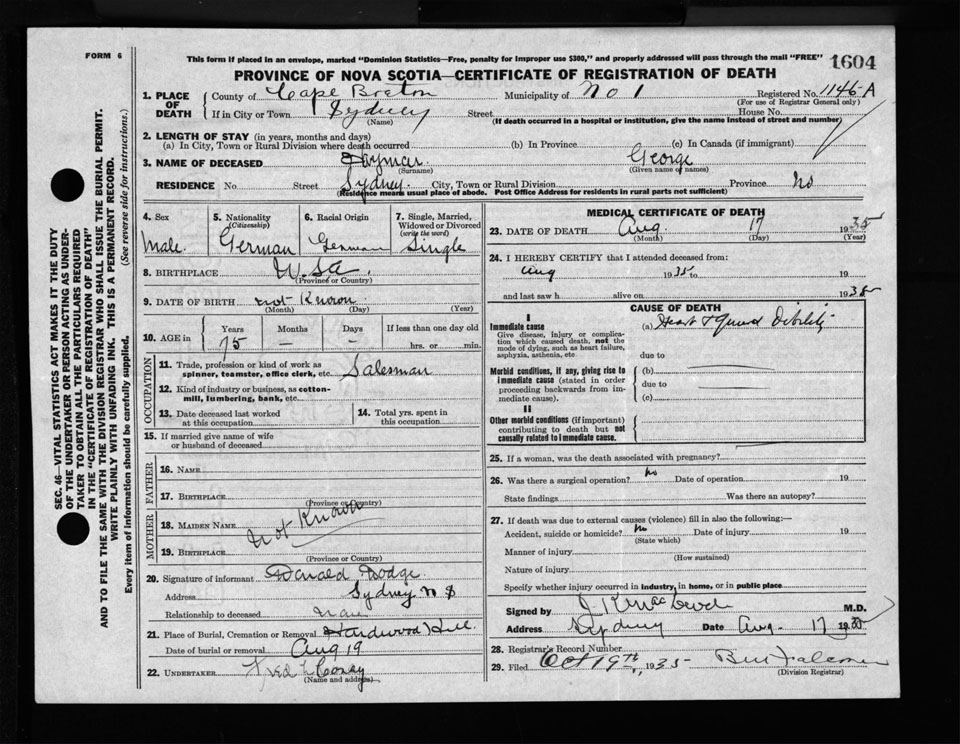 FORM 6
This form if placed in an envelope, marked "Dominion Statistics—Free, penalty for improper use $300," and properly addressed will pass through the mail "FREE"
1604
PROVINCE OF NOVA SCOTIA—CERTIFICATE OF REGISTRATION OF DEATH
1. PLACE OF DEATH
County of Cape Breton Municipality of No 1 Registered No. 1146-A
(For use of Registrar General only)
If in City or Town Sydney Street House No.
(Name) (If death occurred in a hospital or institution, give the name instead of street and number)
2. LENGTH OF STAY (in years, months and days)
(a) In City, Town or Rural Division where death occurred (b) In Province (c) In Canada (if immigrant)
3. NAME OF DECEASED George
(Surname) (Given name or names)
RESIDENCE No. Street Sydney City, Town or Rural Division Province NS
(Residence means usual place of abode. Post Office Address for residents in rural parts not sufficient)
4. Sex
Male
5. Nationality
(Citizenship)
German
6. Racial Origin
German
7. Single, Married, Widowed or Divorced
(write the word)
Single
8. BIRTHPLACE U.S.A.
(Province or Country)
9. DATE OF BIRTH not Known
(Month) (Day) (Year)
10. AGE in
Years Months Days If less than one day old
75 — — hrs. or min.
OCCUPATION
11. Trade, profession or kind of work as spinner, teamster, office clerk, etc. Salesman
12. Kind of industry or business, as cotton-mill, lumbering, bank, etc.
13. Date deceased last worked at this occupation
14. Total yrs. spent in this occupation
15. If married give name of wife or husband of deceased
FATHER
16. NAME
17. BIRTHPLACE
(Province or Country)
MOTHER
18. MAIDEN NAME not Known
19. BIRTHPLACE
(Province or Country)
20. Signature of informant Donald Dodge
Address Sydney N S
Relationship to deceased
21. Place of Burial, Cremation or Removal Hardwood Hill
Date of burial or removal Aug 19
22. UNDERTAKER Fred L Coney
(Name and address)
MEDICAL CERTIFICATE OF DEATH
23. DATE OF DEATH Aug. 17 1935
(Month) (Day) (Year)
24. I HEREBY CERTIFY that I attended deceased from:
Aug 1935 to 19
and last saw h alive on 1935
CAUSE OF DEATH
I
Immediate cause
Give disease, injury or complication which caused death, not the mode of dying, such as heart failure, asphyxia, asthenia, etc.
(a) Heart & Debility
due to
Morbid conditions, if any, giving rise to immediate cause (stated in order proceeding backwards from immediate cause).
(b)
due to
(c)
II
Other morbid conditions (if important) contributing to death but not causally related to immediate cause.
25. If a woman, was the death associated with pregnancy?
26. Was there a surgical operation? No Date of operation 19
State findings Was there an autopsy?
27. If death was due to external causes (violence) fill in also the following:—
Accident, suicide or homicide? No Date of injury 19
(State which)
Manner of injury
(How sustained)
Nature of injury
Specify whether injury occurred in industry, in home, or in public place
Signed by M.D.
Address Sydney Date Aug. 17 1935
28. Registrar's Record Number
29. Filed Oct 19th, 1935
(Division Registrar)
SEC. 46—VITAL STATISTICS ACT MAKES IT THE DUTY
OF THE UNDERTAKER OR PERSON ACTING AS UNDER-
TAKER TO OBTAIN ALL THE PARTICULARS REQUIRED
IN THE "CERTIFICATE OF REGISTRATION OF DEATH"
AND TO FILE THE SAME WITH THE DIVISION REGISTRAR WHO SHALL ISSUE THE BURIAL PERMIT.
WRITE PLAINLY WITH UNFADING INK. THIS IS A PERMANENT RECORD.
Every item of information should be carefully supplied. (See reverse side for instructions.)